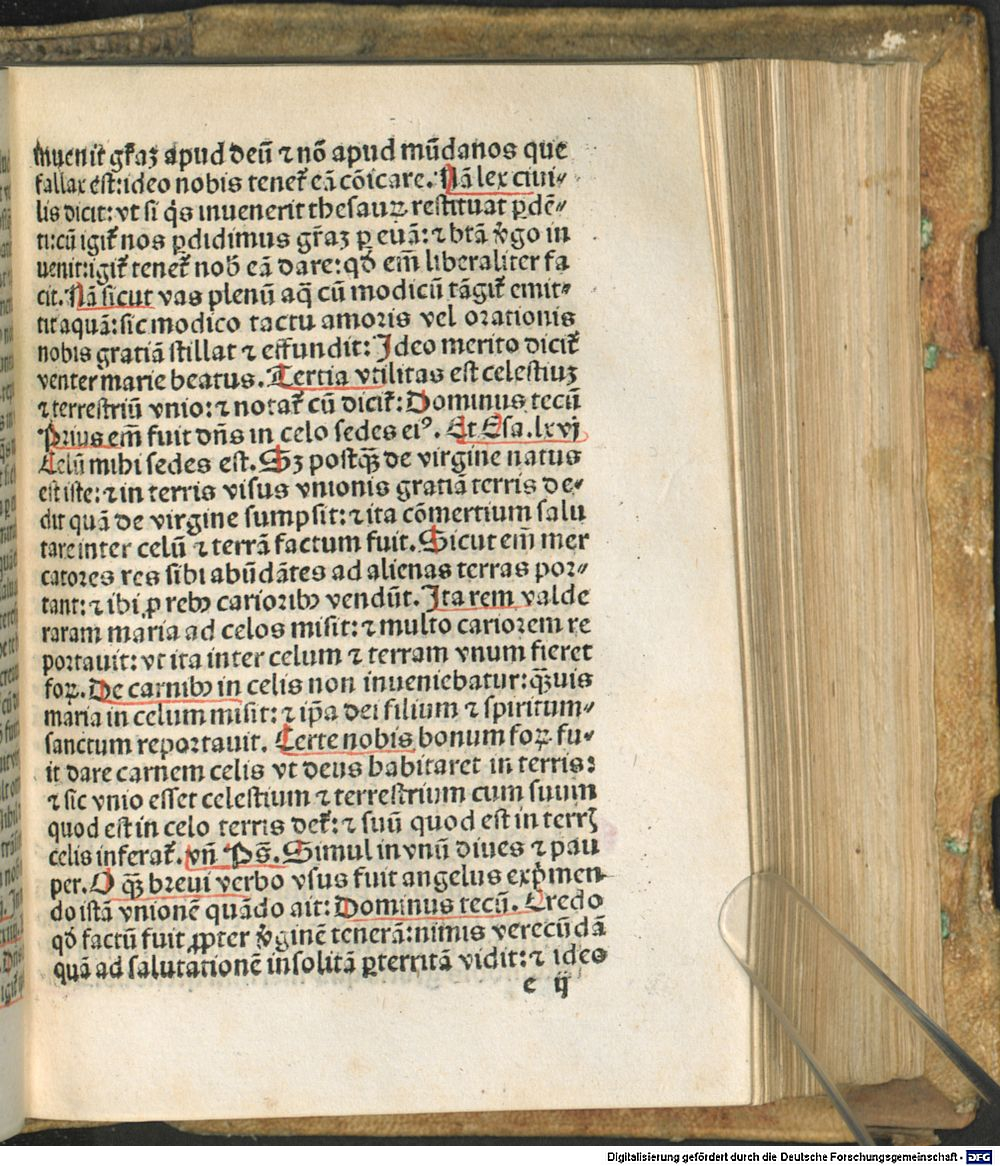 inuenit gr̃aȝ apud deũ ⁊ nõ apud mũdanos que
fallax est: ideo nobis tenet᷑ eã cõicare. Nã lex ciui⸗
lis dicit: vt si q̇s inuenerit thesauꝝ restituat ꝑdẽ⸗
ti: cũ igit᷑ nos ꝑdidimus gr̃aȝ ꝑ euã: ⁊ btã v̾go in
uenit: igit᷑ tenet᷑ nob̃ eã dare: qđ em̃ liberaliter fa
cit. Nã sicut vas plenũ aq̃ cũ modicũ tãgit᷑ emit⸗
tit aquã: sic modico tactu amoris vel orationis
nobis gratiã stillat ⁊ effundit: Ideo merito dicit᷑
venter marie beatus. Tertia vtilitas est celestiuȝ
⁊ terrestriũ vnio: ⁊ notat᷑ cũ dicit᷑: Dominus tecũ
Prius em̃ fuit dñs in celo sedes eiꝰ. Et Esa. lxvj
Celũ mihi sedes est. Sȝ postq̃ȝ de virgine natus
est iste: ⁊ in terris visus vnionis gratiã terris de⸗
dit quã de virgine sumpsit: ⁊ ita cõmertium salu
tare inter celũ ⁊ terrã factum fuit. Sicut em̃ mer
catores res sibi abũdãtes ad alienas terras por⸗
tant: ⁊ ibi ꝓ rebꝰ carioribꝰ vendũt. Ita rem valde
raram maria ad celos misit: ⁊ multo cariorem re
portauit: vt ita inter celum ⁊ terram vnum fieret
foꝝ. De carnibꝰ in celis non inueniebatur: q̃ȝuis
maria in celum misit: ⁊ ip̃a dei filium ⁊ spiritum⸗
sanctum reportauit. Certe nobis bonum foꝝ fu⸗
it dare carnem celis vt deus habitaret in terris:
⁊ sic vnio esset celestium ⁊ terrestrium cum suum
quod est in celo terris det᷑: ⁊ suũ quod est in terrꝭ
celis inferat᷑. vñ Ps̃. Simul in vnũ diues ⁊ pau
per. O q̃ȝ breui verbo vsus fuit angelus exp̃men
do istã vnionẽ quãdo ait: Dominus tecũ. Credo
qđ factũ fuit ꝓpter v̾ginẽ tenerã: nimis verecũdã
quã ad salutationẽ insolitã ꝑterritã vidit: ⁊ ideo
e ij
Digitalisierung gefördert durch die Deutsche Forschungsgemeinschaft - DFG